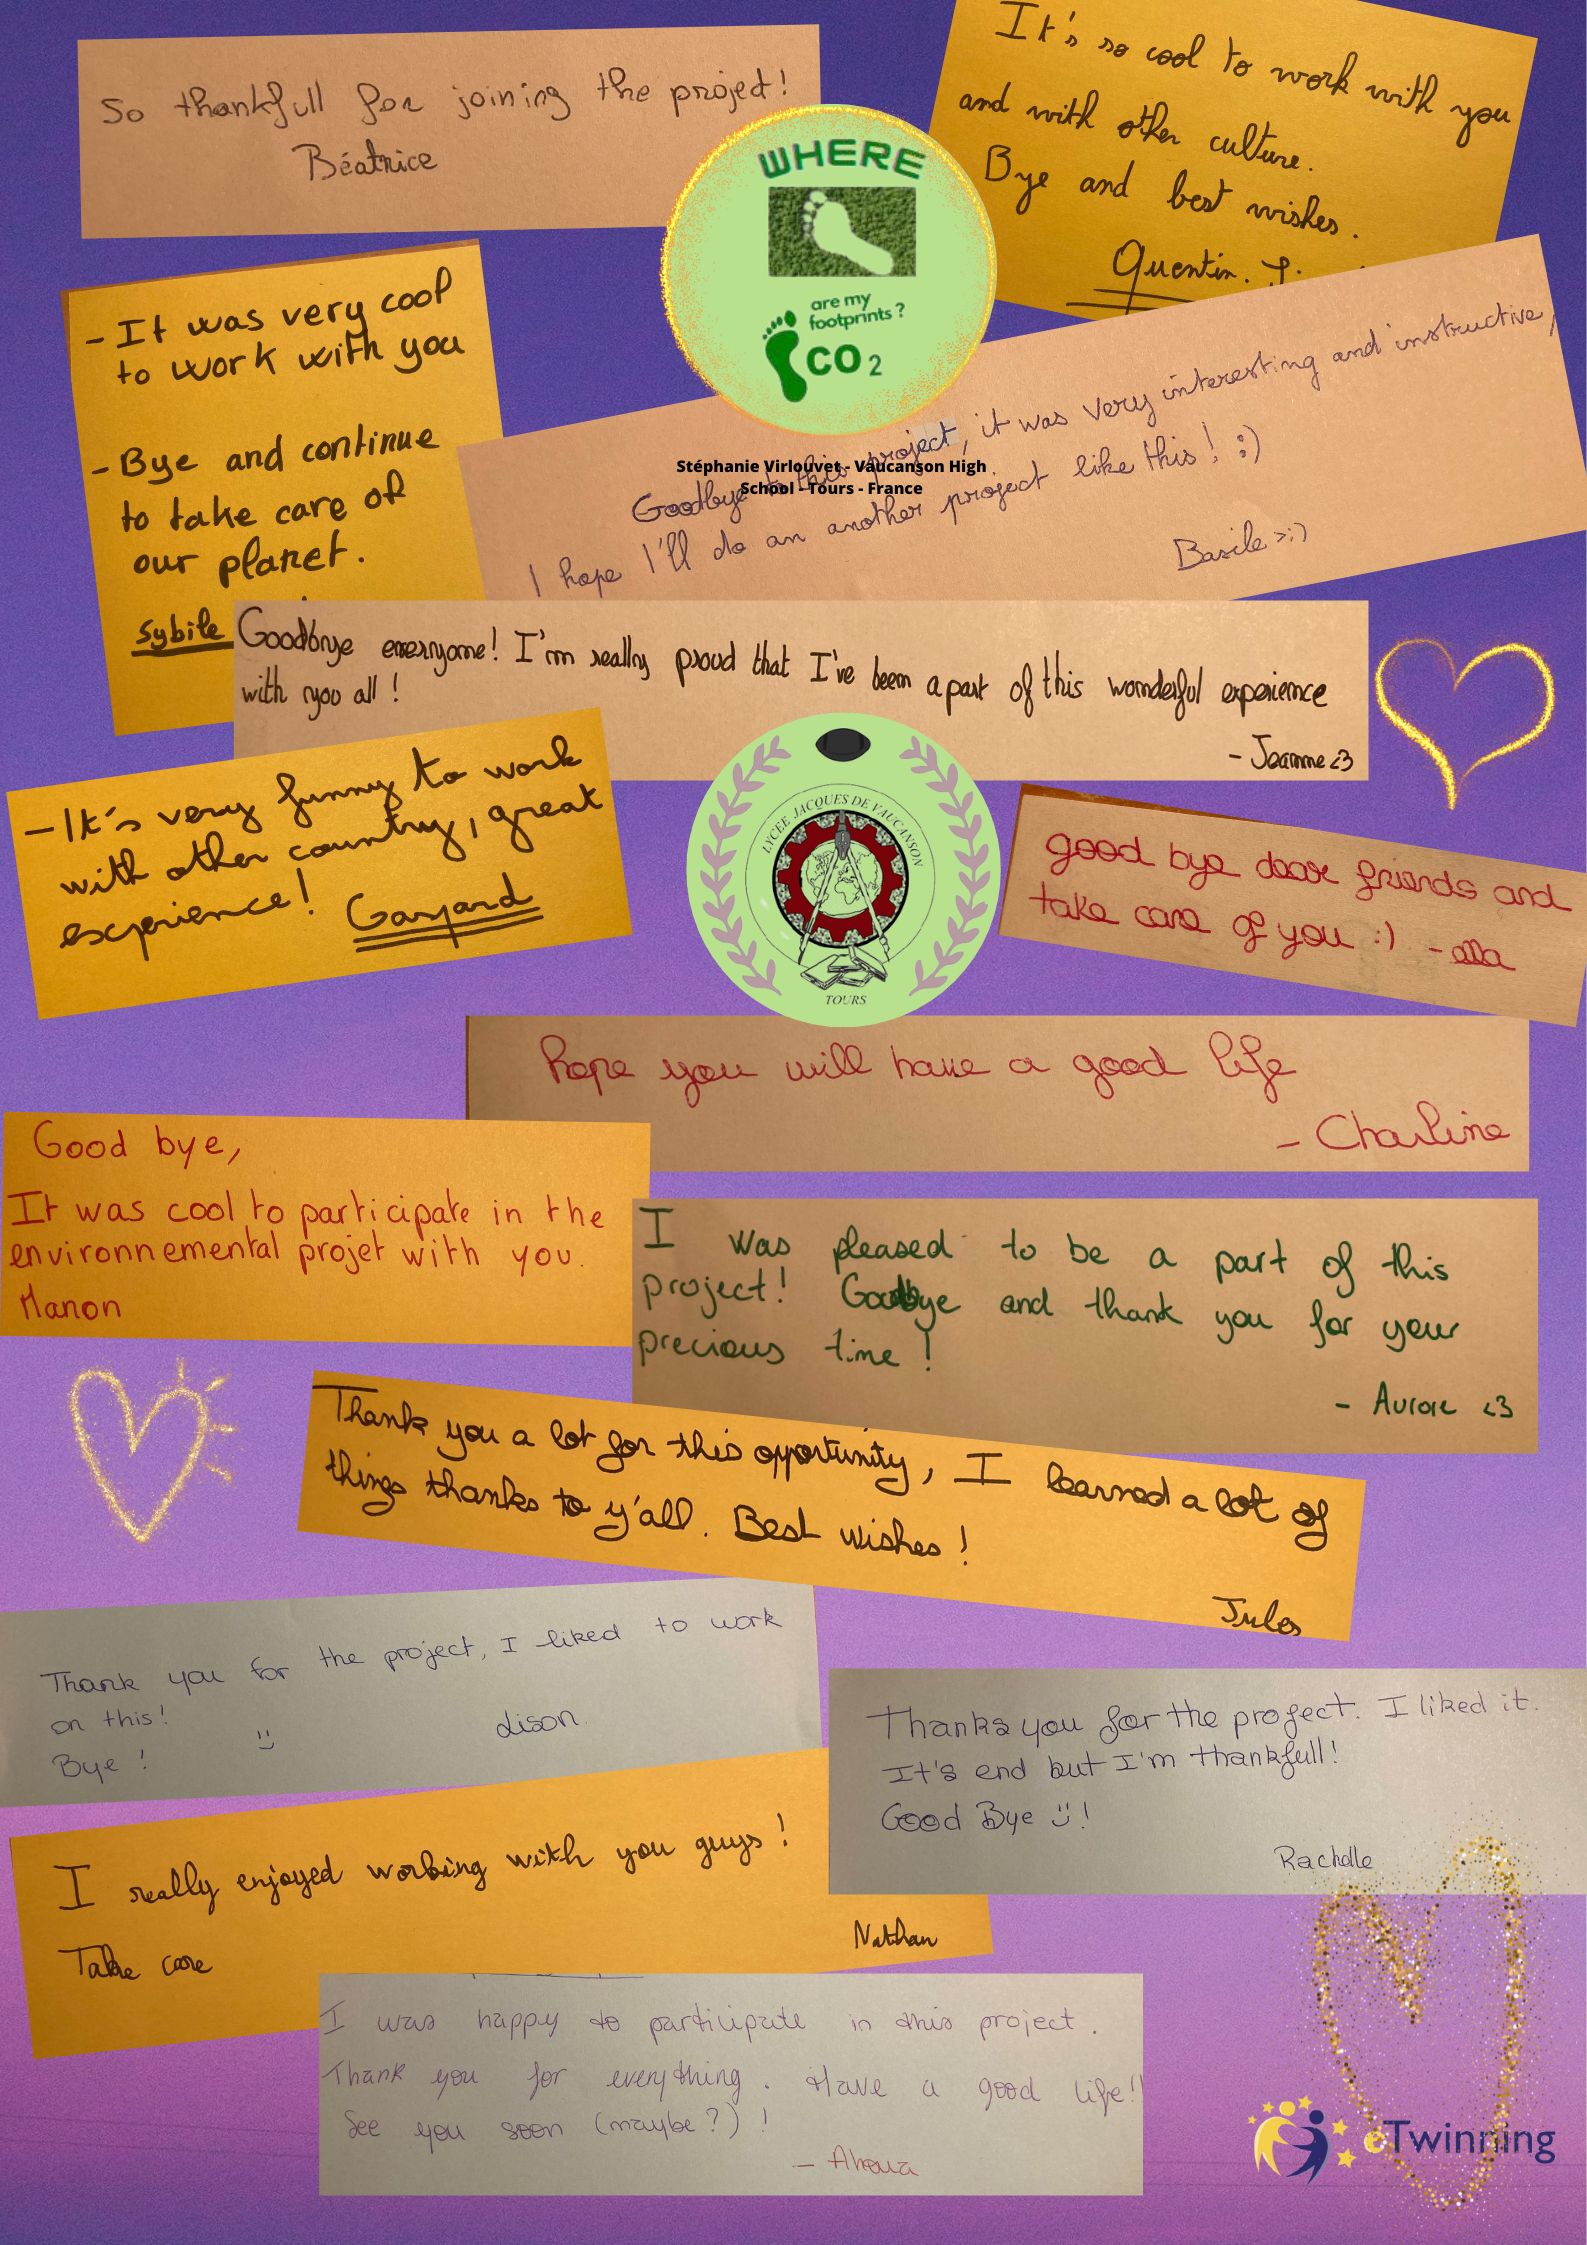 So thankfull for joining the project!
Béatrice
It's so cool to work with you
and with other culture.
Bye and best wishes.
Quentin.
WHERE
are my
footprints ?
CO 2
- It was very cool
to work with you
- Bye and continue
to take care of
our planet.
Sybile
Goodbye to this project, it was very interesting and instructive,
I hope I'll do an another project like this! :)
Basile >:)
Stéphanie Virlouvet - Vaucanson High
School - Tours - France
Goodbye everyone! I'm really proud that I've been a part of this wonderful experience
with you all !
- Jeanne <3
- It's very funny to work
with other country, great
experience!
LYCEE JACQUES DE VAUCANSON
TOURS
good bye dear friends and
take care of you :)
hope you will have a good life
- Charline
Good bye,
It was cool to participate in the
environnemental projet with you.
Manon
I was pleased to be a part of this
project! Goodbye and thank you for your
precious time !
- Aurore <3
Thank you a lot for this opportunity, I learned a lot of
things thanks to y'all. Best wishes !
Jules
Thank you for the project, I liked to work
on this!
Bye ! :)
Lison.
Thanks you for the project. I liked it.
It's end but I'm thankfull!
Good Bye :) !
Rachelle
I really enjoyed working with you guys !
Take care
Nathan
I was happy to participate in this project.
Thank you for everything. Have a good life!
See you soon (maybe?) !
eTwinning